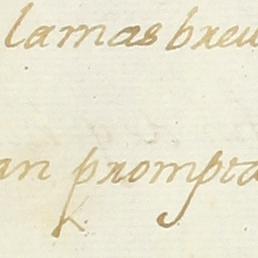 lamas breu
an prompta